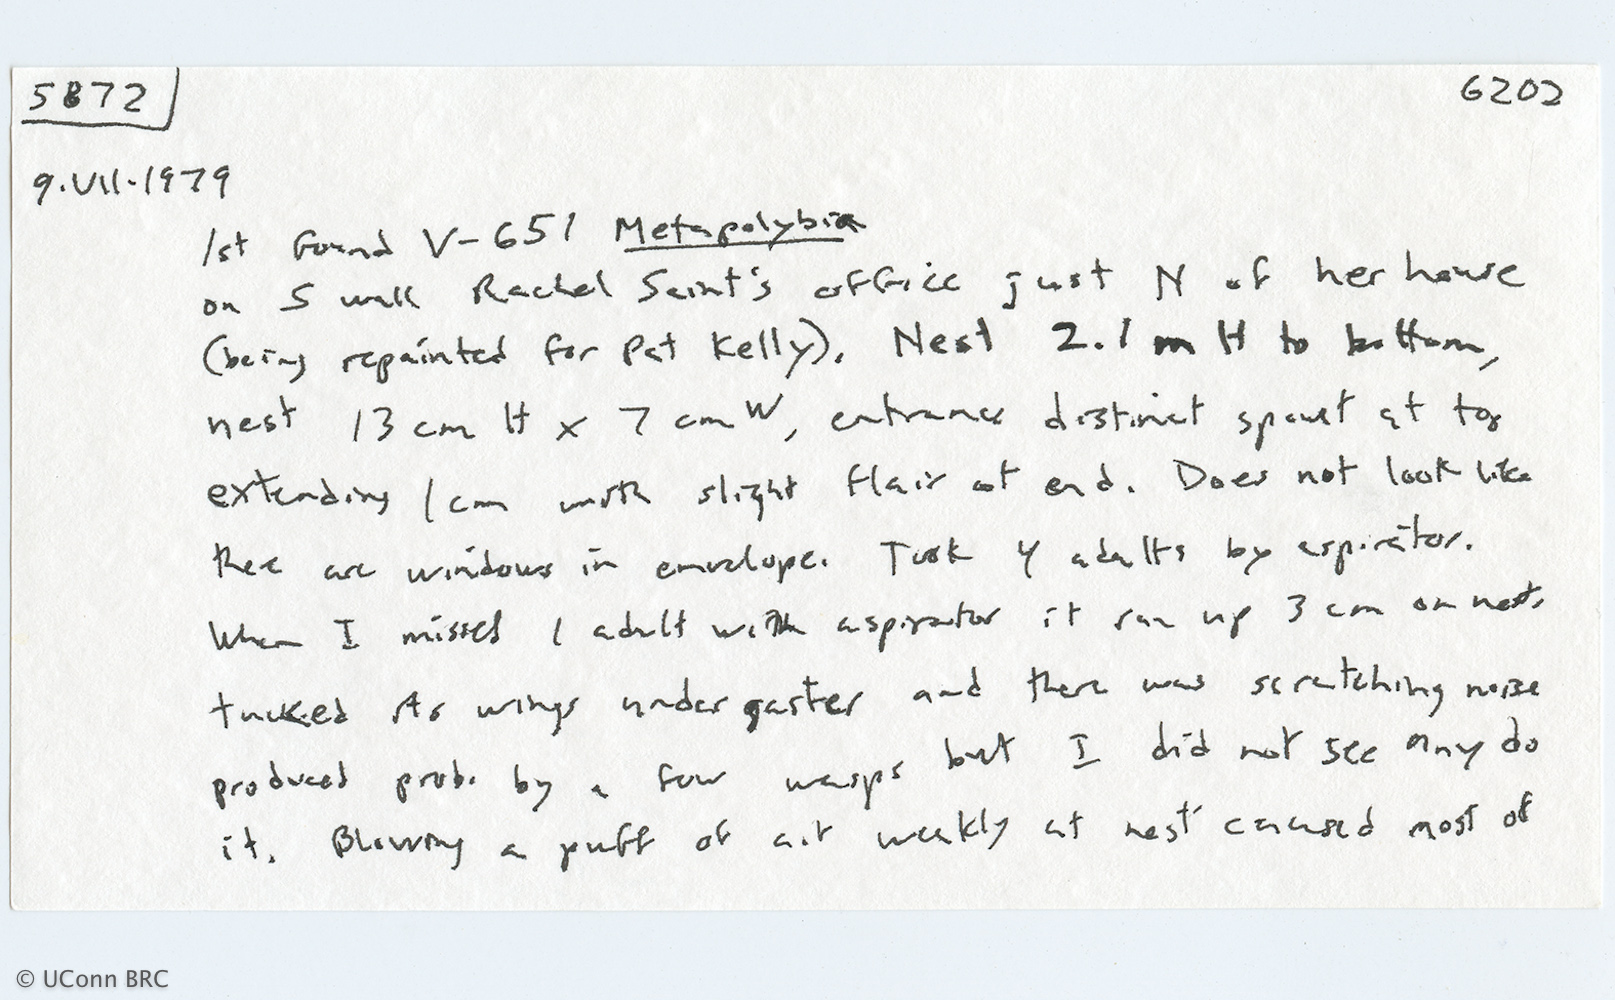 5872
6202
9.VII.1979
1st found V-651 Metapolybia
on S wall Rachel Saint's office just N of her house
(being repainted for Pat Kelly). Nest 2.1 m H to bottom,
nest 13 cm H x 7 cm W, entrance distinct spout at top
extending 1 cm with slight flair at end. Does not look like
there are windows in envelope. Took 4 adults by aspirator.
When I missed 1 adult with aspirator it ran up 3 cm on nest,
tucked its wings under gaster and there was scratching noise
produced prob. by a few wasps but I did not see any do
it. Blowing a puff of air weakly at nest caused most of
© UConn BRC